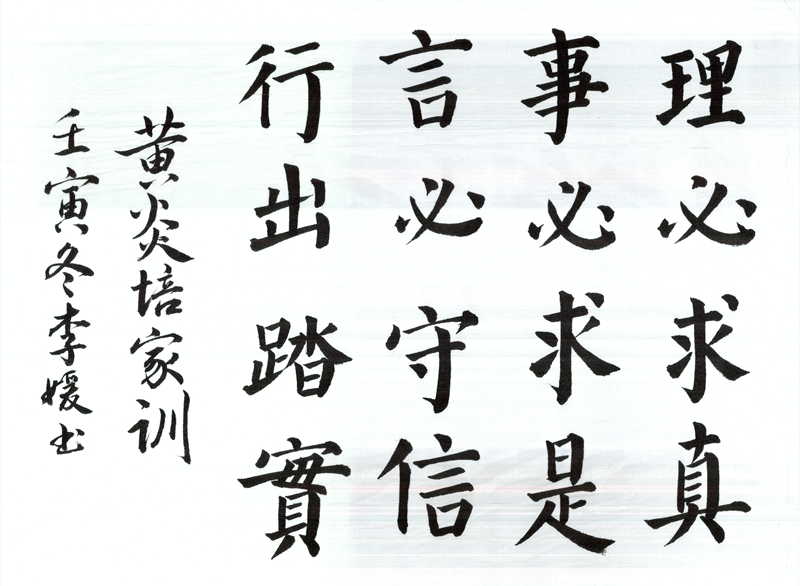 理必求真
事必求是
言必守信
行出踏實
黄炎培家训
壬寅冬李媛书